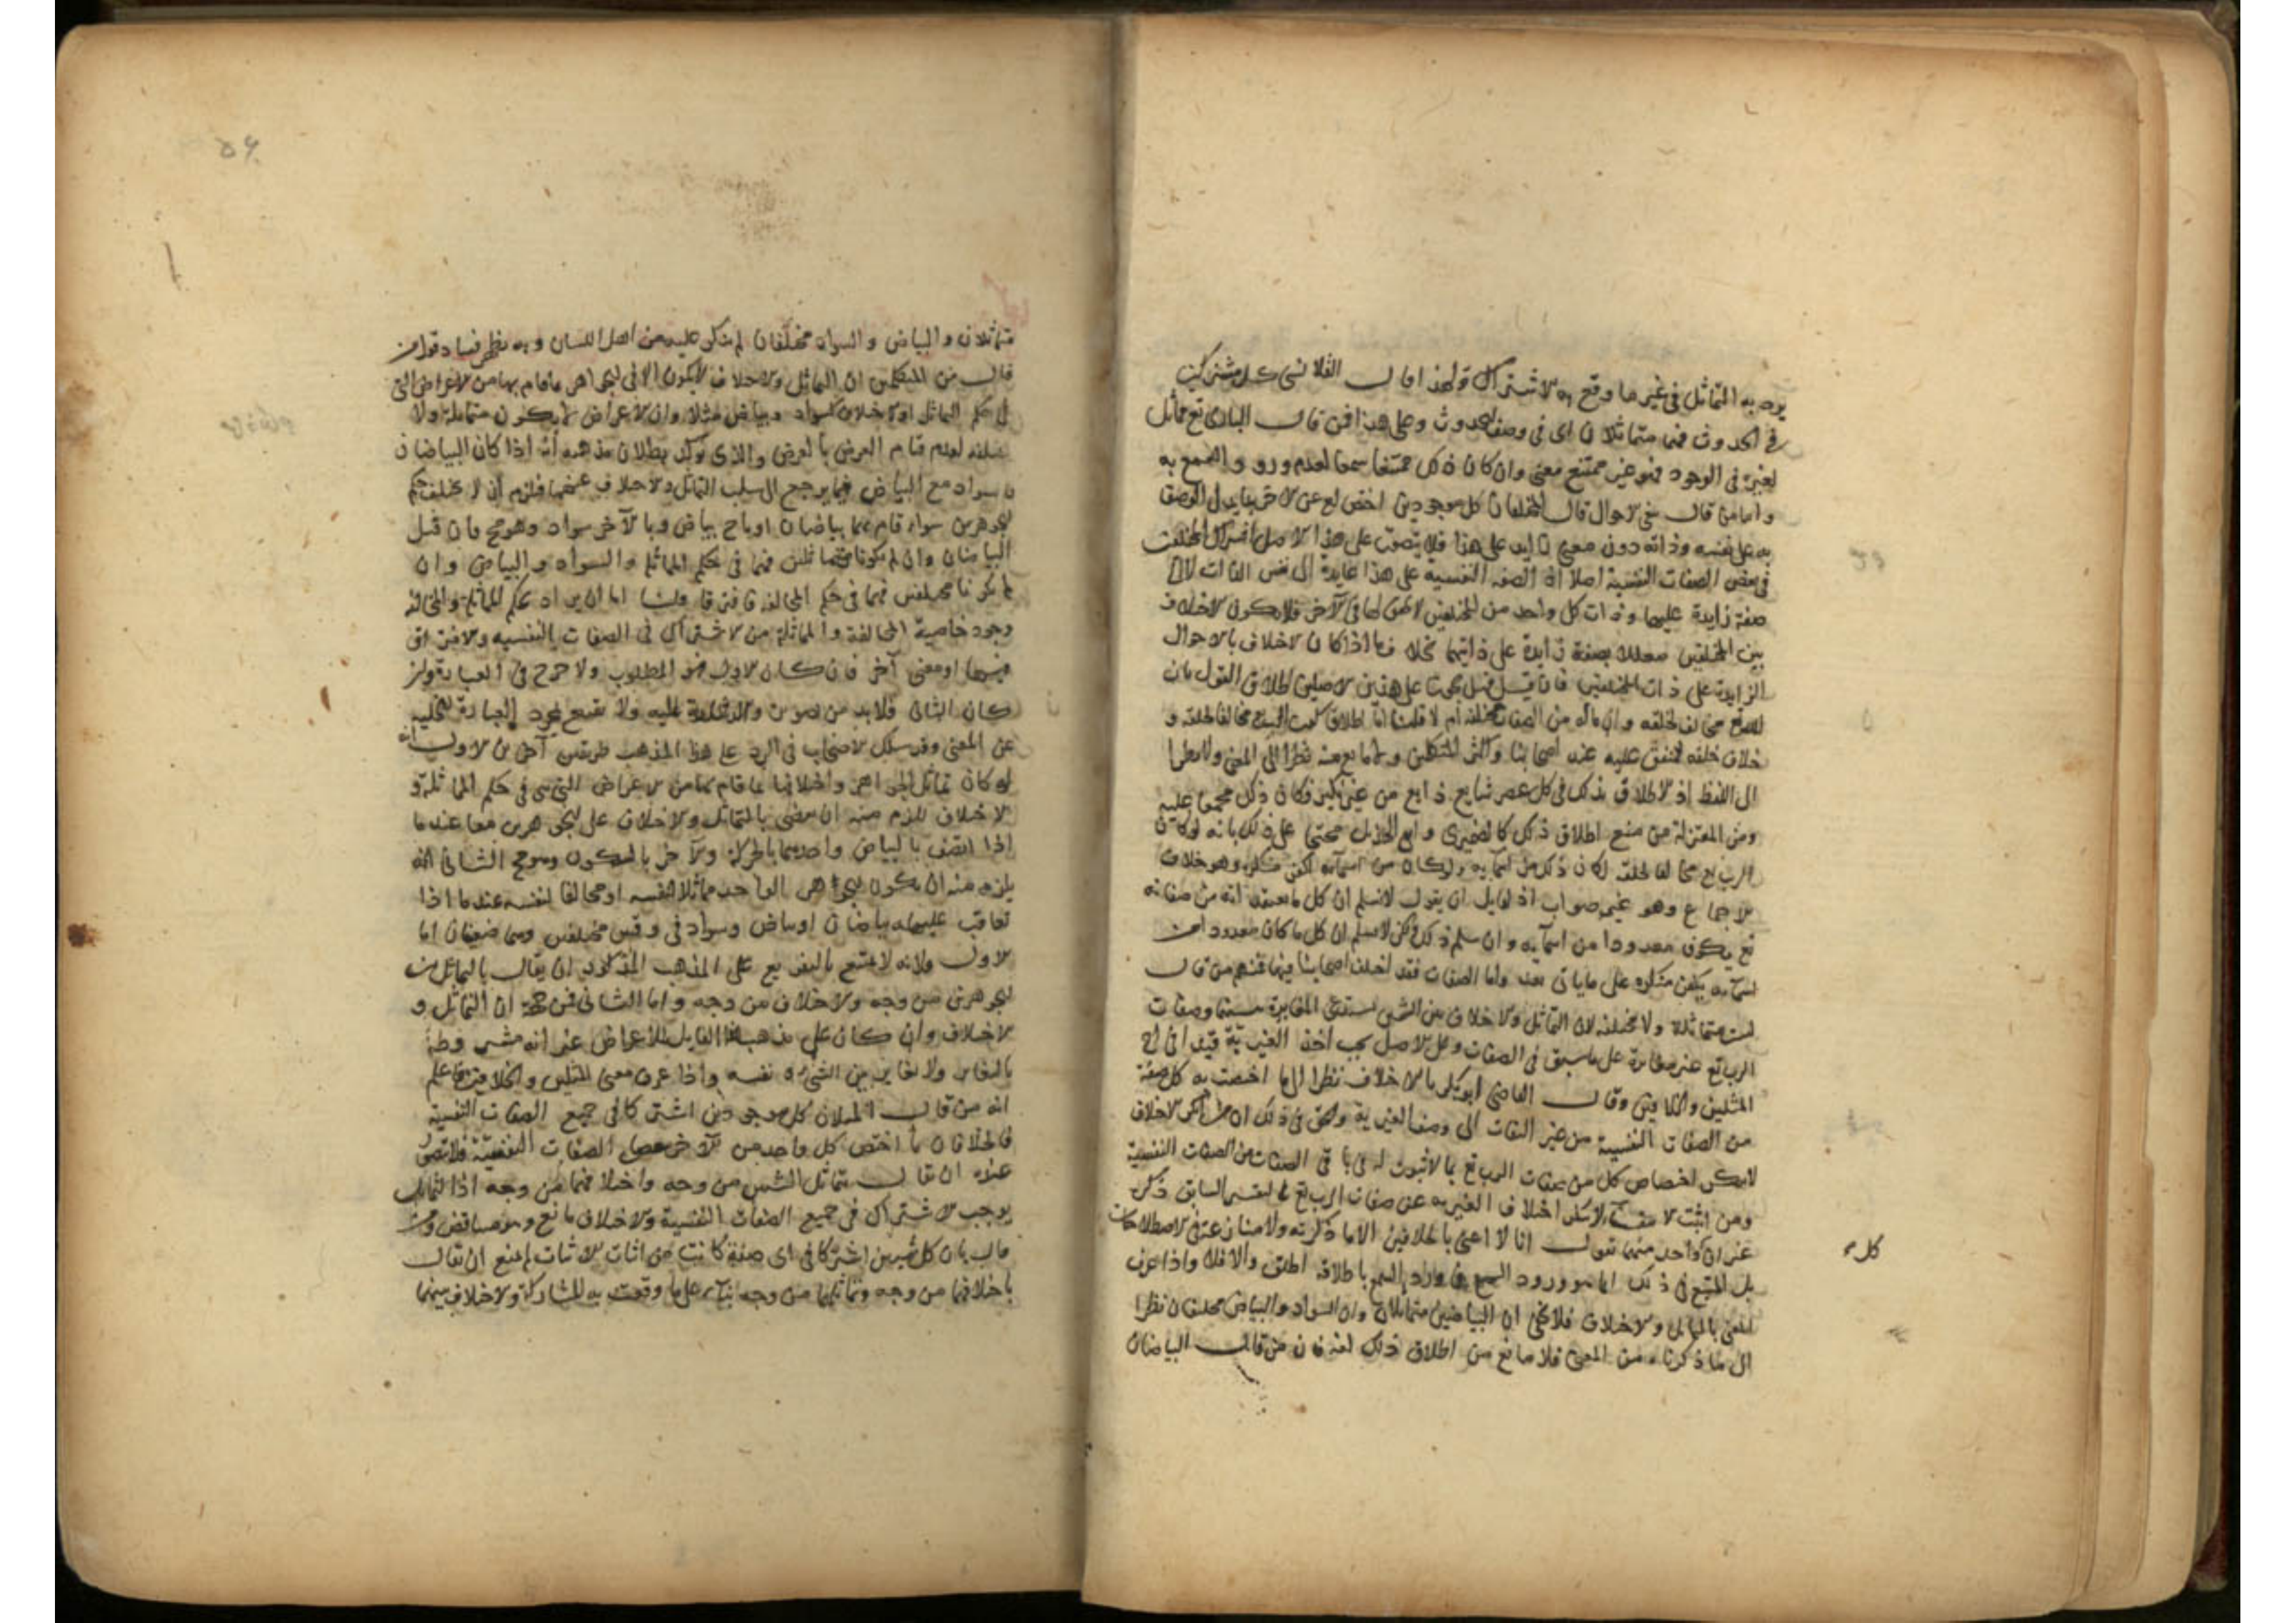 يوصف به التماثل في غير ما وقع به الاشتراك ولهذا قال القلانسي كل مشتركين
في الحدوث فهما متماثلان اى في وصف الحدوث وعلى هذا فمن قال البارى تع مماثل
لغيره في الوجود فهو غير ممتنع معنى وان كان ذلك ممتنعا سمعا لعدم ورود السمع به
واما من قال بنفى الاحوال قال المختلفان كل موجودين اختص احدهما عن الاخر بما يدل الوصف
به على نفسه وذاته دون معنى زايد على هذا فلا يتصور على هذا الاصل اشتراك المختلفين
في بعض الصفات النفسية اصلا اذ الصفة النفسية على هذا عايدة الى نفس الذات لا الى
صفة زايدة عليها وذات كل واحد من المختلفين لا تحقق لها في الاخر فلا يكون الاختلاف
بين المختلفين معللا بصفة زايدة على ذاتيهما بخلاف ما اذا كان الاختلاف بالاحوال
الزايدة على ذات المختلفين فان قيل فهل يجوز على هذين الاصلين اطلاق القول بان
الله تع مخالف لخلقه وان ماله من الصفات مختلفة أم لا قلنا اما اطلاق كون الرب تع مخالفا لخلقه و
خلاف خلقه فمتفق عليه عند اصحابنا واكثر المتكلمين ولا مانع منه نظرا الى المعنى ولا نظرا
الى اللفظ اذ الاطلاق بذلك في كل عصر شايع ذايع من غير نكير فكان ذلك مجمعا عليه
ومن المعتزلة من منع اطلاق ذلك كالضميرى وابى الهذيل محتجا على ذلك بانه لو كان
الرب تع مخالفا لخلقه لكان ذلك من اسمآيه ولو كان من اسمآيه لكفر منكره وهو خلاف
الاجماع وهو غير صواب اذ لقايل ان يقول لا نسلم ان كل ما يعتقد انه من صفاته
تع يكون معدودا من اسمآيه وان سلم ذلك فلكن لا نسلم ان كل ما كان معدودا من
اسمآيه يكفر منكره على ما ياتى بعد واما الصفات فقد اختلف اصحابنا فيها فمنهم من قال
ليست متماثلة ولا مختلفة لان التماثل والاختلاف بين الشيئين يستدعى المغايرة بينهما وصفات
الرب تع غير متغايرة على ما سبق في الصفات وعلى الاصل يجب اخذ الغيرية قيدا في
المثلين والخلافين وقال القاضى ابو بكر بالاختلاف نظرا الى ما اختصت به كل صفة
من الصفات النفسية من غير التفات الى وصف الغيرية والحق في ذلك ان من انكر الاختلاف
لا ينكر اختصاص كل من صفات الرب تع بما لا ثبوت له في باقى الصفات من الصفات النفسية
ومن اثبت لا ينكر اختلاف الغيرية عن صفات الرب تع بالتفسير السابق ذكره
غير ان كل واحد منهما يقول انا لا اعنى بالخلافين الا ما ذكرته ولا منازعة في الاصطلاحات
بل المتبع في ذلك انما هو ورود السمع فان ورد السمع باطلاقه اطلق والا فلا واذا عرف
المعنى بالتماثل والاختلاف فلا يخفى ان البياضين متماثلان وان السواد والبياض مختلفان نظرا
الى ما ذكرناه من المعنى فلا مانع من اطلاق ذلك لغة فان من قال البياضان
كل
متماثلان والبياض والسواد مختلفان لم ينكر عليه من اهل اللسان وبه يظهر فساد قول من
قال من المتكلمين ان التماثل والاختلاف لا يكون الا في الجواهر ما قام بها من الاعراض التى
في حكم التماثل او الاختلاف كسواد وبياض مثلا وان الاعراض لا يكون متماثلة ولا
مختلفة لعدم قيام العرض بالعرض والذى يوكد بطلان مذهبه أنه اذا كان البياضان
والسواد مع البياض فيما يرجع الى سلب التماثل والاختلاف عنهما فلزم ان لا يختلف حكم
الجوهرين سواء قام بهما بياضان او باحدهما بياض وبالآخر سواد وهو مح فان قيل
البياضان وان لم يكونا متماثلين فهما في حكم المماثلة والسواد والبياض وان
لم يكونا مختلفين فهما في حكم المخالفة فافترقا قلنا اما ان يراد بحكم المماثلة والمخالفة
وجود خاصية المخالفة والمماثلة من الاشتراك في الصفات النفسية والافتراق
فيها او معنى آخر فان كان الاول فهو المطلوب ولا حرج في العبارة وان
كان الثانى فلابد من تصويره والدلالة عليه ولا نقنع بمجرد العبارة الخلية
عن المعنى وقد سلك الاصحاب في الرد على هذا المذهب طريقين آخرين الاول انه
لو كان تماثل الجواهر واختلافها بما قام بها من الاعراض التى هى في حكم المماثلة و
الاختلاف للزم منه ان يقضى بالتماثل والاختلاف على الجوهرين معا عند ما
اذا اتصفا بالبياض واحدهما بالحركة والآخر بالسكون وهو مح الثانى انه
يلزم منه ان يكون الجوهر الواحد مماثلا لنفسه او مخالفا لنفسه عند ما اذا
تعاقب عليه بياضان او بياض وسواد في وقتين مختلفين وهما ضعيفان اما
الاول فلانه لا يمتنع بالتفريع على المذهب المذكور ان يقال بالتماثل بين
الجوهرين من وجه والاختلاف من وجه واما الثانى فمن جهة ان التماثل و
الاختلاف وان كان على مذهب هذا القايل للاعراض غير انه مشروط
بالتغاير ولا تغاير بين الشىء ونفسه واذا عرف معنى المثلين والخلافين فاعلم
انه من قال المثلان كل موجودين اشتركا في جميع الصفات النفسية
فالخلافان ما اختص كل واحد من الآخر ببعض الصفات النفسية فلا يتصور
عنده ان يقال بتماثل الشيئين من وجه واختلافهما من وجه اذ التماثل
يوجب الاشتراك في جميع الصفات النفسية والاختلاف مانع وهو تناقض ومن
قال بان كل شيئين اشتركا في اى صفة كانت من اثبات الاثبات لم يمنع ان يقال
باختلافهما من وجه وتماثلهما من وجه بنآء على ما وقعت به المشاركة والاختلاف بينهما